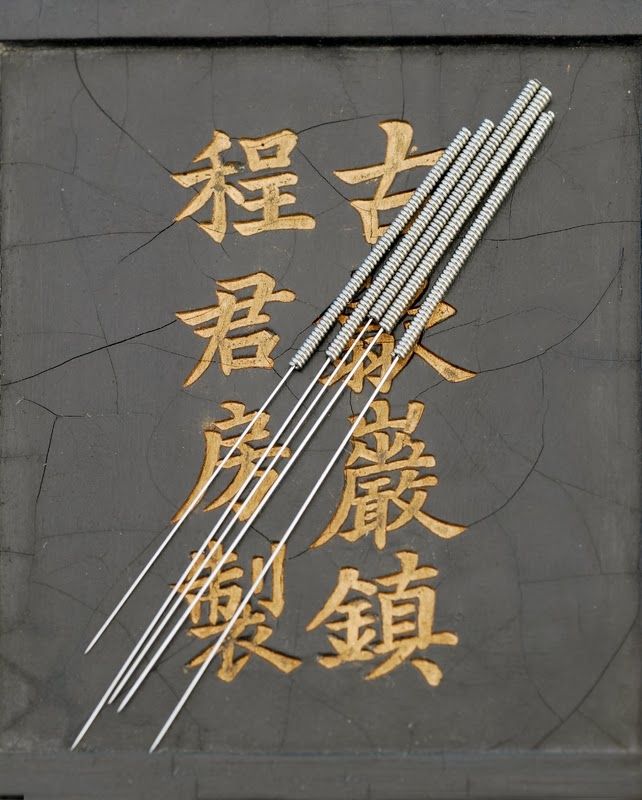 古歙巖鎮
程君房製